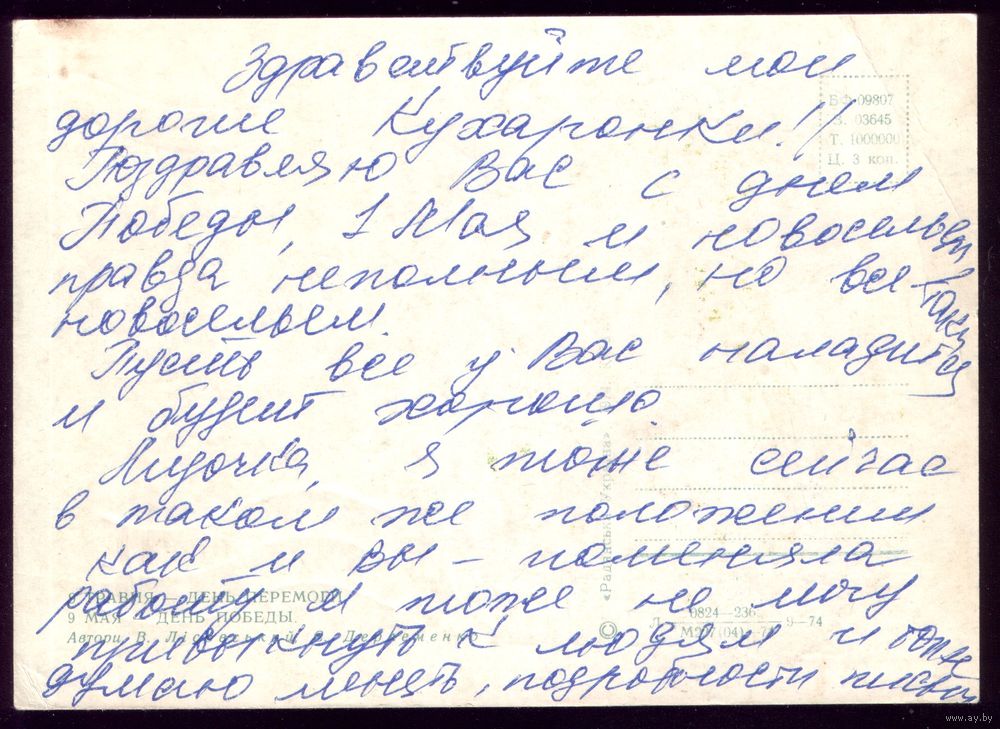 Здравствуйте мои
дорогие Кухаронки!
Поздравляю Вас с днем
Победы, 1 Мая и новосельем
правда неполным, но все-таки
новосельем.
Пусть все у Вас наладится
и будет хорошо
Лидочка, я тоже сейчас
в таком же положении
как и вы — поменяла
работу и тоже не могу
привыкнуть к людям и тоже
думаю менять, подробности письмом
БФ 09807
З. 03645
Т. 1000000
Ц. 3 коп.
9 ТРАВНЯ — ДЕНЬ ПЕРЕМОГИ.
9 МАЯ — ДЕНЬ ПОБЕДЫ.
Автори В.
«Радянська Україна»
©
0824—236
9—74
www.ay.by